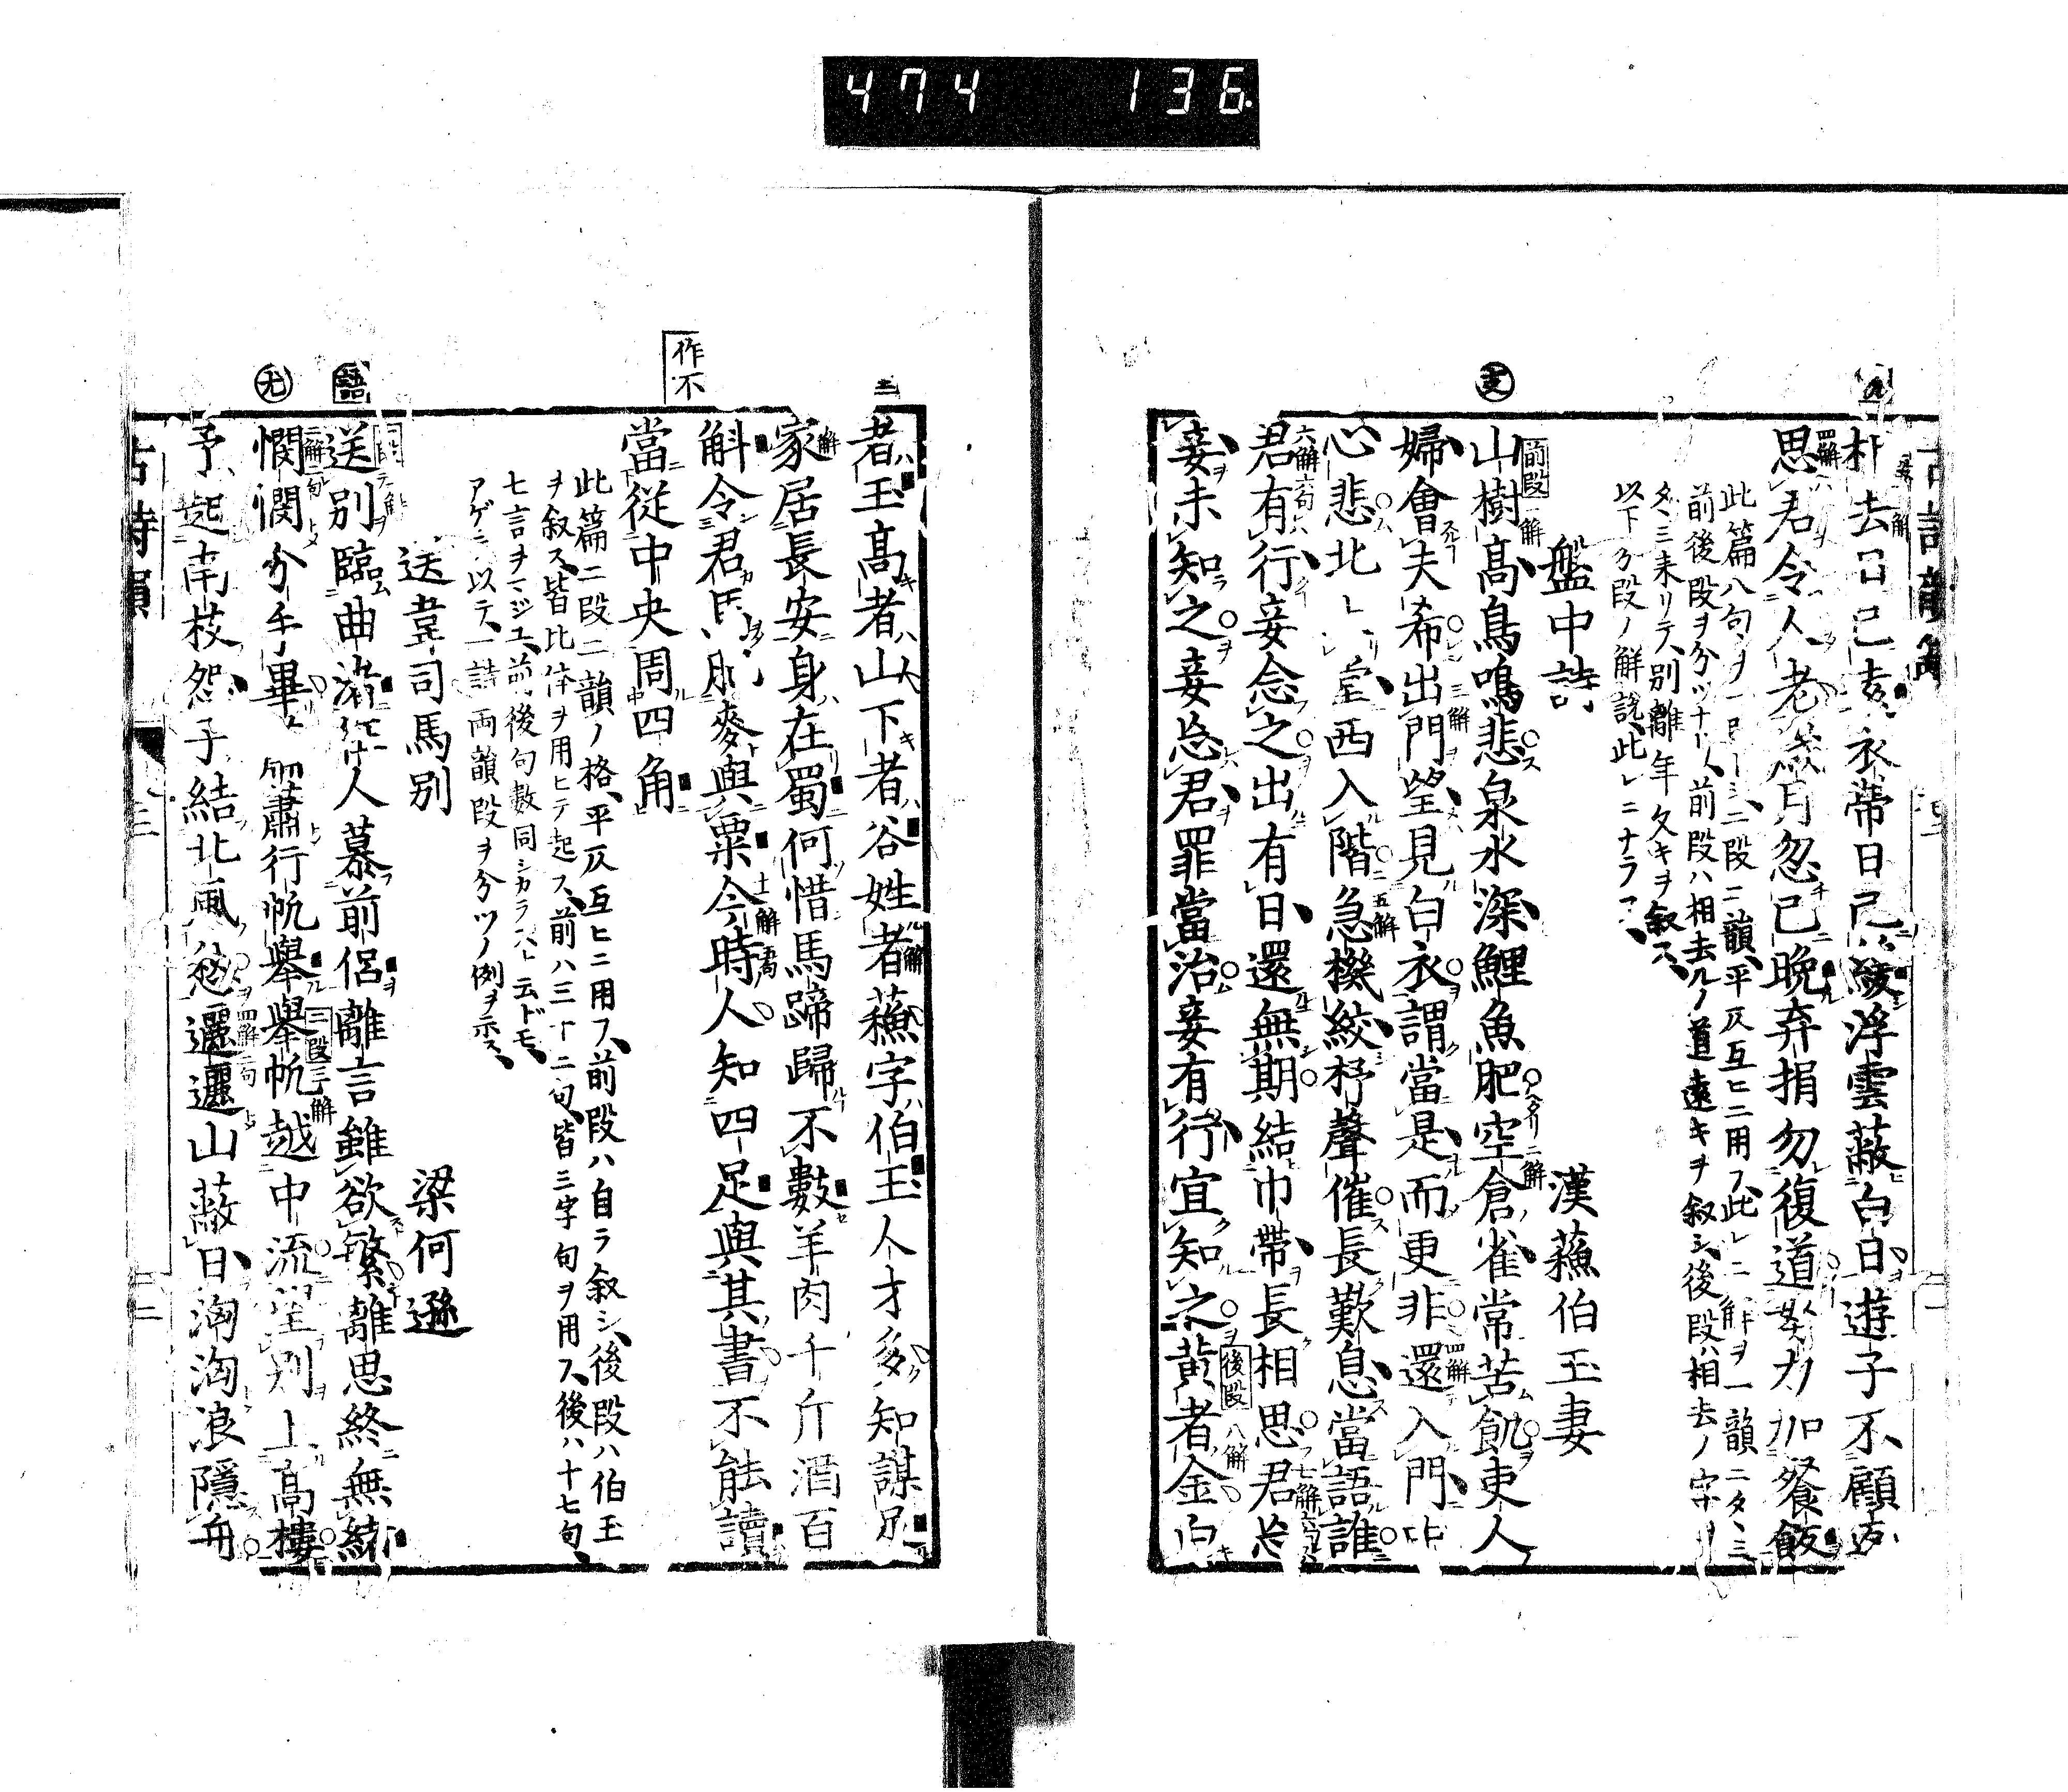 474 136
相去日已遠衣帶日已緩浮雲蔽白日遊子不顧返
思君令人老歲月忽已晚弃捐勿復道努力加餐飯
此篇八句ヲ一段トシ二段二韻平仄互ヒニ用フ此レ二解ヲ一韻ニタヽミ
前後段ヲ分ツナリ前段ハ相去ルノ道遠キヲ叙シ後段ハ相去ノ字ヨリ
タヽミ來リテ別離年久キヲ叙ス
以下分段ノ解説此レニナラフ
盤中詩 漢蘓伯玉妻
山樹髙鳥鳴悲泉水深鯉魚肥空倉雀常苦飢吏人
婦會夫希出門望見白衣謂當是而更非還入門中
心悲北上堂西入階急機絞杼聲催長歎息當語誰
君有行妾念之出有日還無期結巾帶長相思君忘
妾未知之妾忘君罪當治妾有行宜知之黄者金白
者玉髙者山下者谷姓者蘓字伯玉人才多知謀足
家居長安身在蜀何惜馬蹄歸不數羊肉千斤酒百
斛令君馬肥麥與粟今時人知四足與其書不能讀
當從中央周四角
作不
此篇二段二韻ノ格平仄互ヒニ用フ前段ハ自ラ叙シ後段ハ伯玉
ヲ叙ス皆比体ヲ用ヒテ起ス前ハ三十二句皆三字句ヲ用フ後ハ十七句
七言ヲマジユ前後句數同シカラスト云ドモ
アゲテ以テ一詩両韻段ヲ分ツノ例ヲ示ス
送韋司馬别 梁何遜
送别臨曲渚征人慕前侣離言雖欲繁離思終無緒
憫憫分手畢蕭蕭行帆舉舉帆越中流望别上高樓
予起南枝怨子結北風愁邐邐山蔽日洶洶浪隱舟